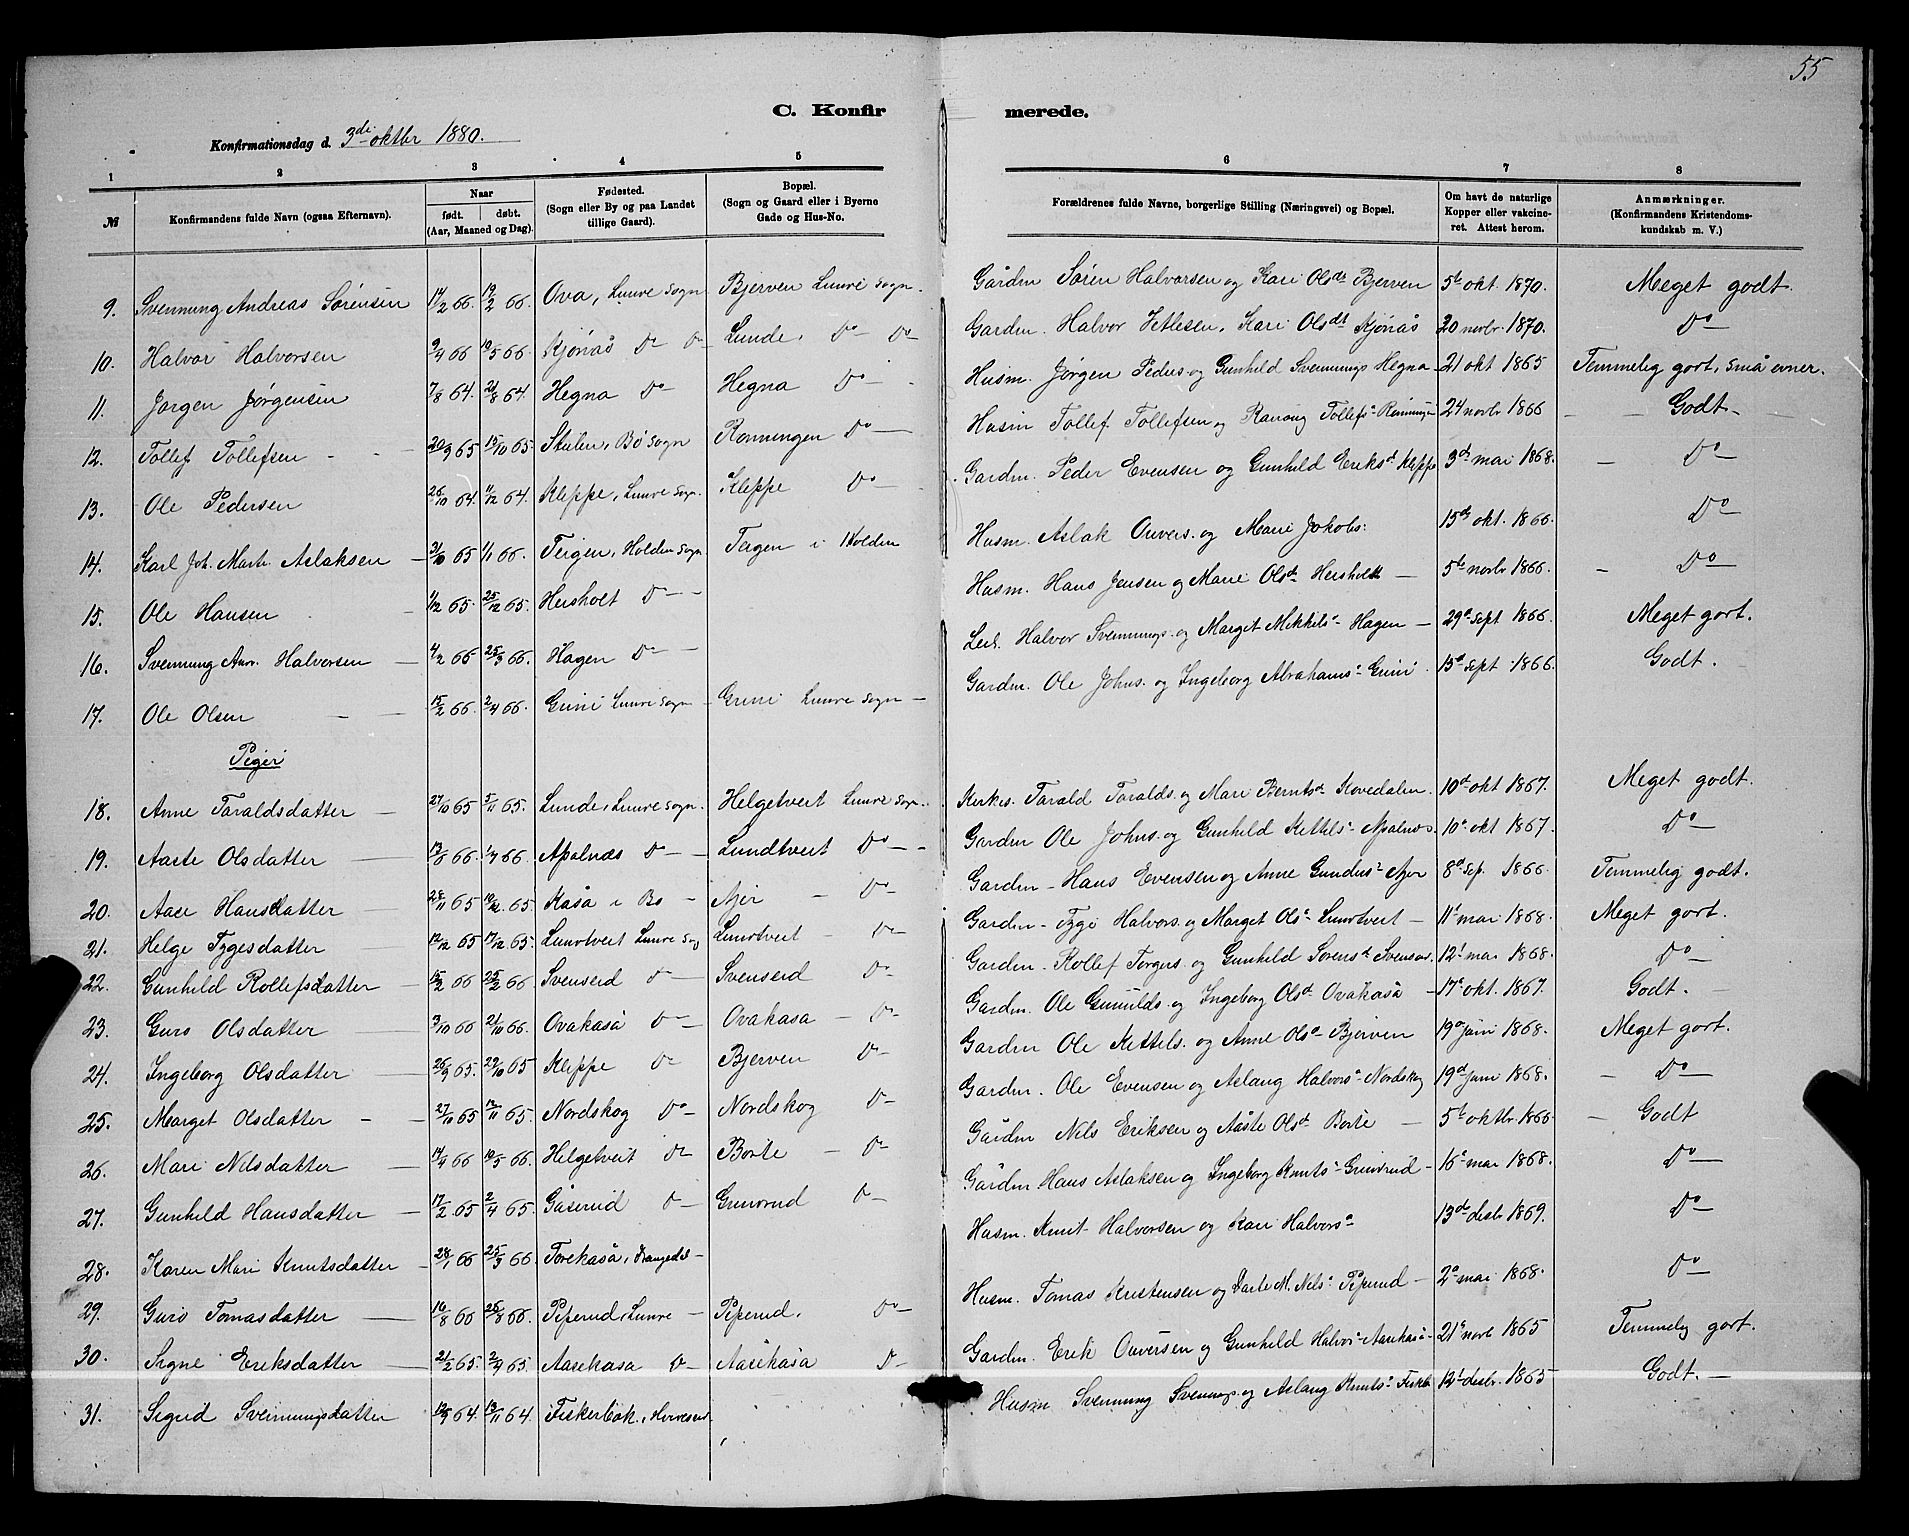 55
C. Konfirmerede.
Konfirmationsdag d. 3die oktbr 1880.
1 2 3 4 5 6 7 8
№ Konfirmandens fulde Navn (ogsaa Efternavn). Naar født. døbt. (Aar, Maaned og Dag). Fødested. (Sogn eller By og paa Landet tillige Gaard). Bopæl. (Sogn og Gaard eller i Byerne Gade og Hus-No. Forældrenes fulde Navne, borgerlige Stilling (Næringsvei) og Bopæl. Om havt de naturlige Kopper eller vakcineret. Attest herom. Anmærkninger. (Konfirmandens Kristendomskundskab m. V.)
9. Svennung Andreas Sørensen 14/2 66. 19/2 66. Ova, Lunde sogn Bjerven Lunde sogn. Gårdm Søren Halvorsen og Kari Olsdr Bjerven 5te okt. 1870. Meget godt.
10. Halvor Halvorsen 9/4 66 10/5 66. Kjönås Do Do Lunde. Do Do Gardm. Halvor Jetlesen, Kari Olsdr Kjönås 20 novbr. 1870. Do
11. Jørgen Jørgensen 7/8 64. 21/8 64. Hegna Do Hegna Do Husm. Jørgen Peders og Gunhild Svennungs Hegna 21 okt 1865 Temmelig godt, små evner.
12. Tollef Tollefsen 20/9 65 15/10 65. Stulen, Bø sogn Ronningen Do Husm Tollef Tollefsen og Ranaug Tollefs Ronningen 24 novbr 1866 Godt
13. Ole Pedersen 26/10 64. 11/12 64. Kleppe, Lunde sogn. Kleppe Do Gardm. Peder Evensen og Gunhild Eriksd Kleppe 3de mai 1868. Do
14. Karl Joh. Martin Aslaksen 31/10 65 1/1 66. Teigen, Holden sogn Teigen i Holden Husm. Aslak Ouvers. og Marie Jakobs: 15de okt. 1866. Do
15. Ole Hansen 1/12 65. 25/12 65. Heisholt Do Husm. Hans Jensen og Marie Olsdr Heisholt 5te novbr 1866. Do
16. Svennung Aav. Halvorsen 4/2 66 25/3 66. Hagen Do Leil. Halvor Svennungs. og Marget Mikkels Hagen 29d sept 1866. Meget godt.
17. Ole Olsen 15/2 66. 2/4 66. Grini Lunde sogn Grini Lunde sogn Gardm. Ole Johns. og Ingeborg Abrahams Grini 15d sept 1866. Godt.
Piger
18. Anne Taraldsdatter 27/10 65 5/11 65. Lunde, Lunde sogn. Helgetveit Lunde sogn. Kirkes. Tarald Taralds. og Mari Berntsd Kovedalen. 10d okt 1867. Meget godt.
19. Aaste Olsdatter 13/6 66. 1/7 66. Apalnæs Do Lundtveit Do Gardm Ole Johns. og Gunhild Kittels Apalnæs. 10d okt 1867. Do
20. Aase Hansdatter 28/11 65 10/12 65. Kåsa i Bø Ajer Do Gardm Hans Evensen og Anne Gundus Ajer 8d sep. 1866. Temmelig godt.
21. Helge Tygesdatter 12/12 65 17/12 65. Lundtveit Lunde sog Lundtveit Do Gardm Tyge Halvors. og Marget Ols Lundtveit 11t mai 1868. Meget godt.
22. Gunhild Rollefsdatter 15/2 66 25/2 66. Svenserd Do Svenserd Do Gardm. Rollef Torgers. og Gunhild Sørensd Svenser. 12t mai 1868. Do
23. Guro Olsdatter 3/10 66 21/10 66. Ovakåså Do Ovakåsa Do Gardm. Ole Gunulds. og Ingeborg Olsd Ovakåså 17d okt. 1867. Godt.
24. Ingeborg Olsdatter 26/9 65. 29/10 65 Kleppe Do Bjerven Do Gardm Ole Kittels. og Anne Ols Bjerven 19d juni 1868. Meget godt.
25. Marget Olsdatter 27/10 65 12/11 65. Nordskog Do Nordskog Do Gardm. Ole Evensen og Aslaug Halvors Nordskog 19d juni 1868. Do
26. Mari Nilsdatter 14/4 66 10/5 66. Helgetveit Do Borte Do Gårdm Nils Eriksen og Aåste Olsd Borte 5te oktbr 1866 Godt
27. Gunhild Hansdatter 17/2 65 2/4 65. Gåserud Do Grinerud Do Gårdm Hans Aslaksen og Ingeborg Knuts Grinerud 16d mai 1868. Do
28. Karen Mari Knutsdatter 28/1 66 25/3 66. Torekåsa, Drangedal Husm. Knut Halvorsen og Kari Halvors 13de desbr 1869. Do
29. Guro Tomasdatter 16/8 66 26/8 66. Piperud, Lunde Piperud, Do Husm. Tomas Kristensen og Dorte M. Nils Piperud 2d mai 1868. Do
30. Signe Eriksdatter 21/2 65. 2/4 65. Aasekåsa Do Aasekåsa Do Gardm. Erik Ouversen og Gunhild Halvors Aasekåsa 21d novb 1865 Temmelig godt.
31. Sigrid Svennungsdatter 18/9 64. 13/11 64. Fiskerbæk, Hvideseid Husm Svennung Svennungs. og Aslaug Knuts Fiskb 12t desbr. 1865 Godt.